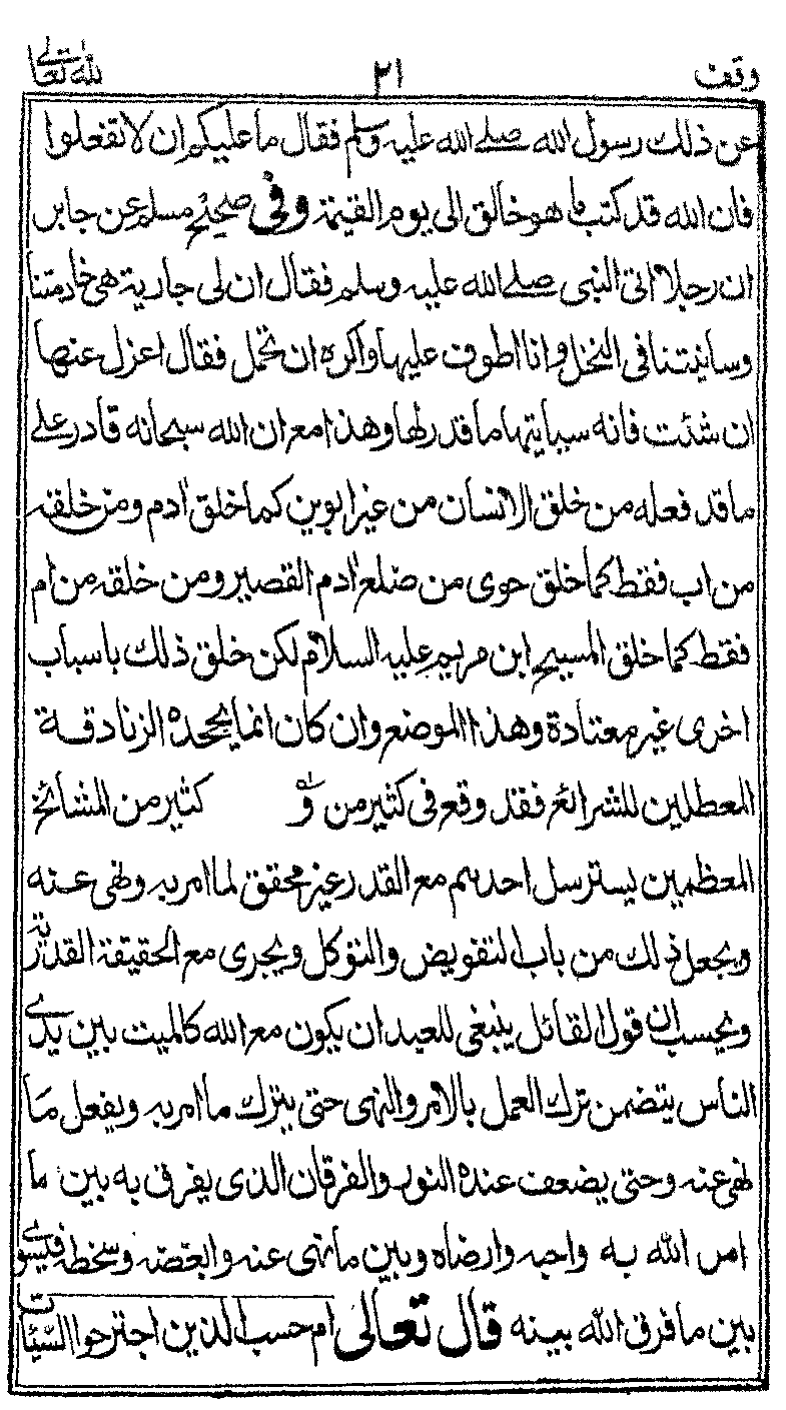 وقف ٢١ لله تعالى
عن ذلك رسول الله صلے الله عليه وسلم فقال ما عليكم ان لا تفعلوا
فان الله قد كتب ما هو خالق الى يوم القيمة وفى صحيح مسلم عن جابر
ان رجلا اتى النبى صلے الله عليه وسلم فقال ان لى جارية هى خادمتنا
وسانيتنا فى النخل وانا اطوف عليها واكره ان تحمل فقال اعزل عنها
ان شئت فانه سياتيها ما قدر لها وهذا مع ان الله سبحانه قادر علے
ما قد فعله من خلق الانسان من غير ابوين كما خلق ادم ومن خلقه
من اب فقط كما خلق حوى من ضلع ادم القصير ومن خلقه من ام
فقط كما خلق المسيح ابن مريم عليه السلام لكن خلق ذلك باسباب
اخرى غير معتادة وهذا الموضع وان كان انما يجحده الزنادقة
المعطلين للشرائع فقد وقع فى كثير من كثير من المشائخ
المعظمين يسترسل احدهم مع القدر غير محقق لما امر به ونهى عنه
ويجعل ذلك من باب التفويض والتوكل ويجرى مع الحقيقة القدرية
ويحسب ان قول القائل ينبغى للعبد ان يكون مع الله كالميت بين يدے
الناس يتضمن ترك العمل بالامر والنهى حتى يترك ما امر به ويفعل ما
نهى عنه وحتى يضعف عنده النور والفرقان الذى يفرق به بين ما
امر الله به واحبه وارضاه وبين ما نهى عنه وابغضه وسخطه فيسوے
بين ما فرق الله بينه قال تعالى ام حسب الذين اجترحوا السيئات